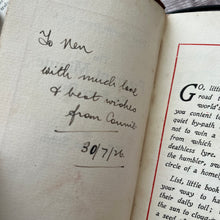 To Nen
with much love
& best wishes
from Connie
30/7/26
GO, little
road t
world
you content t
quiet by-path
not to win a
from which
deathless lyre.
the humbler, sw
circle of a homel
List, little book
your way to
their daily toil;
the sun to close